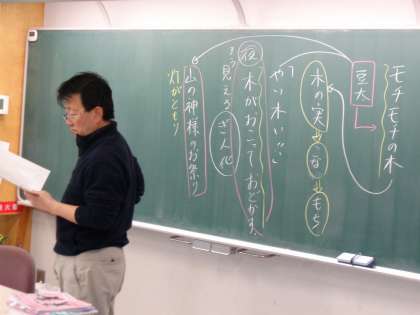 モチモチの木
豆太
木の実→こな→もち
「やい木ぃ…」
夜 木がおこって おどかす。
そう見える ぎ人化
山の神様のお祭り
灯がともり